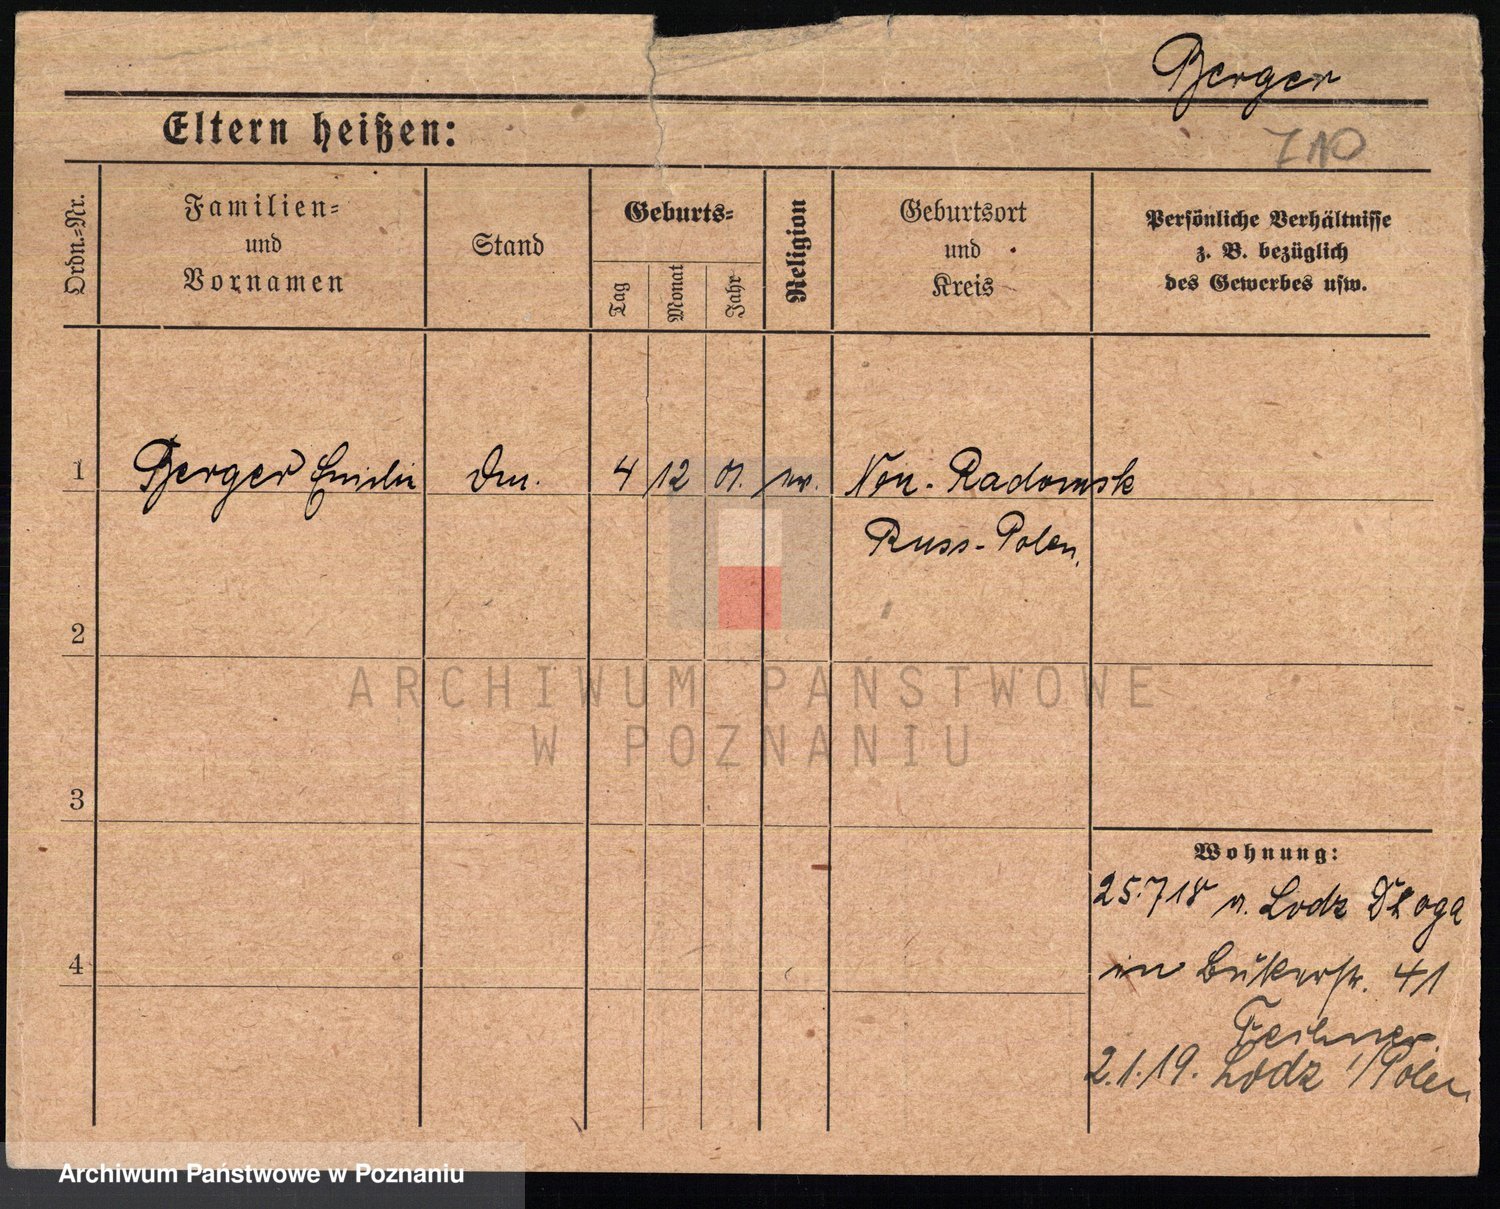 Berger
Eltern heißen:
710
Ordn.-Nr.
Familien-
und
Vornamen
Stand
Geburts-
Tag
Monat
Jahr
Religion
Geburtsort
und
Kreis
Persönliche Verhältnisse
z. B. bezüglich
des Gewerbes usw.
1 Berger Emilie 4 12 01. ev. Nou-Radomsk
Russ-Polen.
2
ARCHIWUM PAŃSTWOWE
W POZNANIU
3
Wohnung:
25.7 18 v. Lodz Dloga
4
in Bukerstr. 41
2.1.19. Lodz /Polen
Archiwum Państwowe w Poznaniu